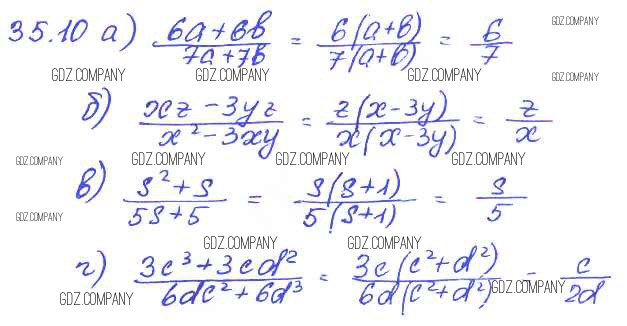 35.10 а) (6a+6b)/(7a+7b) = (6(a+b))/(7(a+b)) = 6/7 GDZ.COMPANY
GDZ.COMPANY GDZ.COMPANY GDZ.COMPANY GDZ.COMPANY
б) (xz-3yz)/(x²-3xy) = (z(x-3y))/(x(x-3y)) = z/x
GDZ.COMPANY GDZ.COMPANY GDZ.COMPANY GDZ.COMPANY
в) (s²+s)/(5s+5) = (s(s+1))/(5(s+1)) = s/5
GDZ.COMPANY
GDZ.COMPANY GDZ.COMPANY
г) (3c³+3cd²)/(6dc²+6d³) = (3c(c²+d²))/(6d(c²+d²)) = c/2d
GDZ.COMPANY GDZ.COMPANY